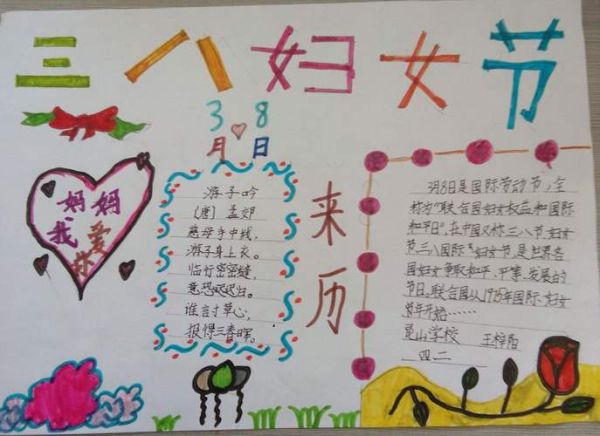 三八妇女节
3月8日
妈妈
我爱
你
游子吟
(唐) 孟郊
慈母手中线,
游子身上衣。
临行密密缝,
意恐迟迟归。
谁言寸草心,
报得三春晖。
来历
3月8日是国际劳动节,全
称为"联合国妇女权益和国际
和平日",在中国又称三八节、妇女
节、三八国际妇女节,是世界各
国妇女争取和平、平等、发展的
节日。联合国从1975年国际妇女
节年开始……
昆山学校 王梓
四二